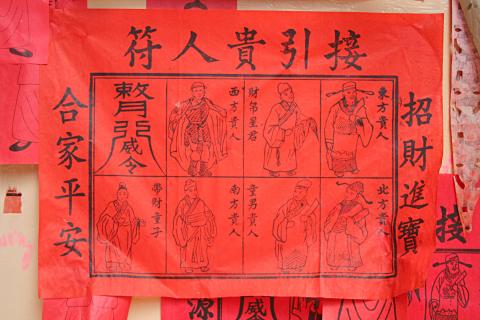 接引貴人符
招財進寶
東方貴人
財帛星君
西方貴人
威令
北方貴人
童男貴人
南方貴人
帶財童子
合家平安
接
源
威